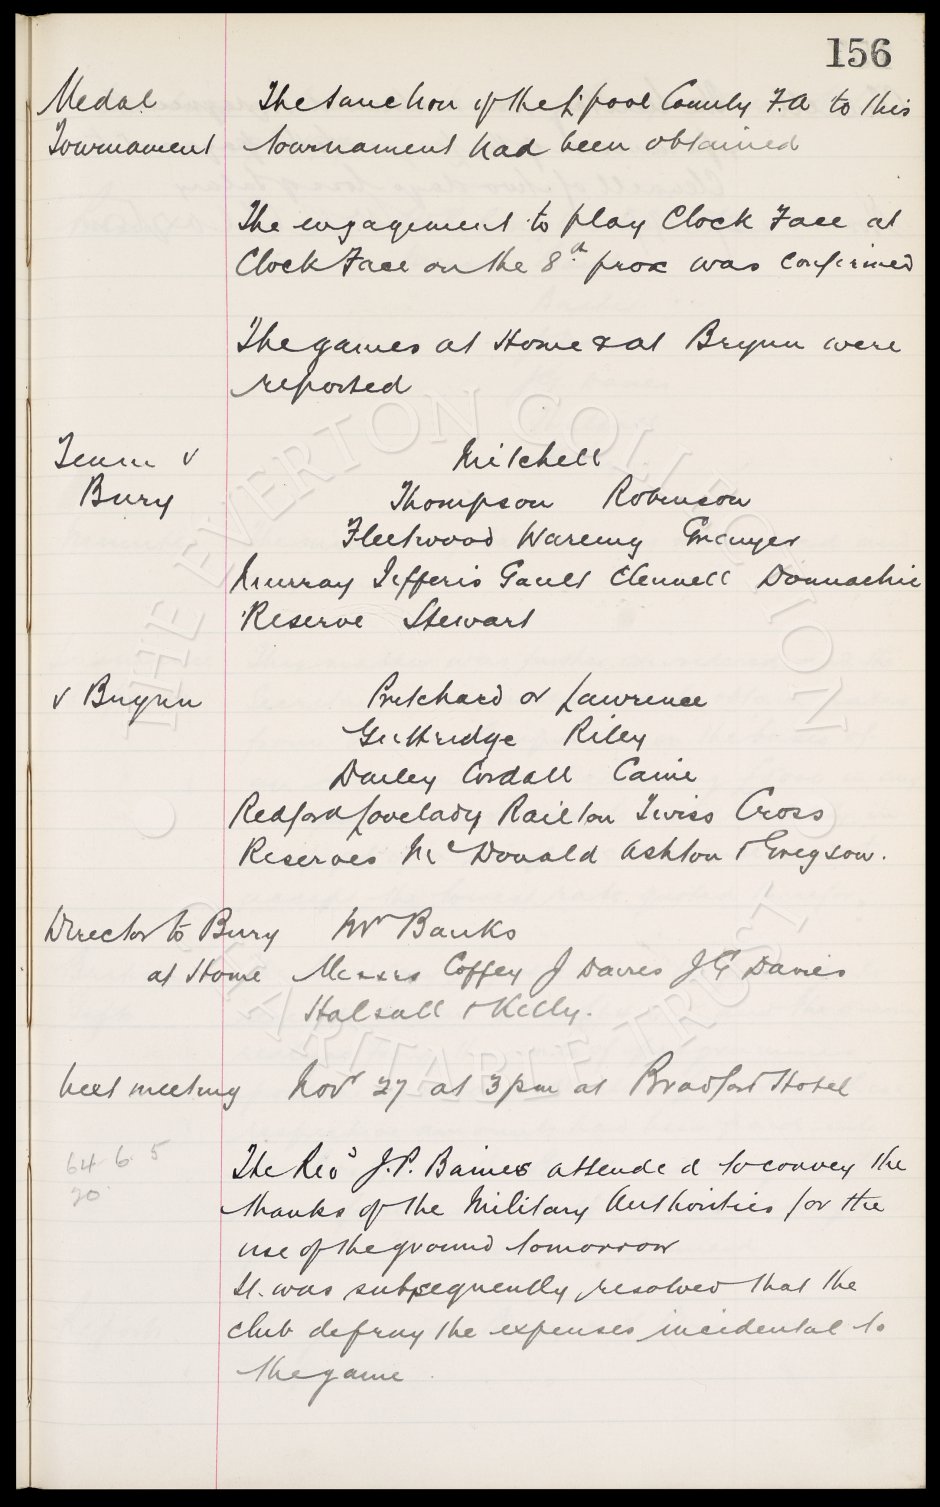 156
Medal The Sanction of the L'pool County F.A to this
Tournament tournament had been obtained
The engagement to play Clock Face at
Clock Face on the 8th prox was confirmed
The games at Home & at Brynn were
reported
Team v Mitchell
Bury Thompson Robinson
Fleetwood Wareing Grenyer
Murray Jefferis Gault Clennell Donnachie
Reserve Stewart
v Brynn Pritchard or Lawrence
Guttridge Riley
Danley Cordall Caine
Redford Lovelady Railton Twiss Cross
Reserves McDonald Ashton & Gregson.
Director to Bury Mr Banks
at Home Messrs Coffey J Davies J G Davies
Halsall & Kelly.
Next meeting Nov 27 at 3pm at Bradford Hotel
64 6 5
20
The Revd J.P. Baines attended to convey the
thanks of the Military Authorities for the
use of the ground tomorrow
It was subsequently resolved that the
club defray the expenses incidental to
the game
THE EVERTON COLLECTION
CHARITABLE TRUST